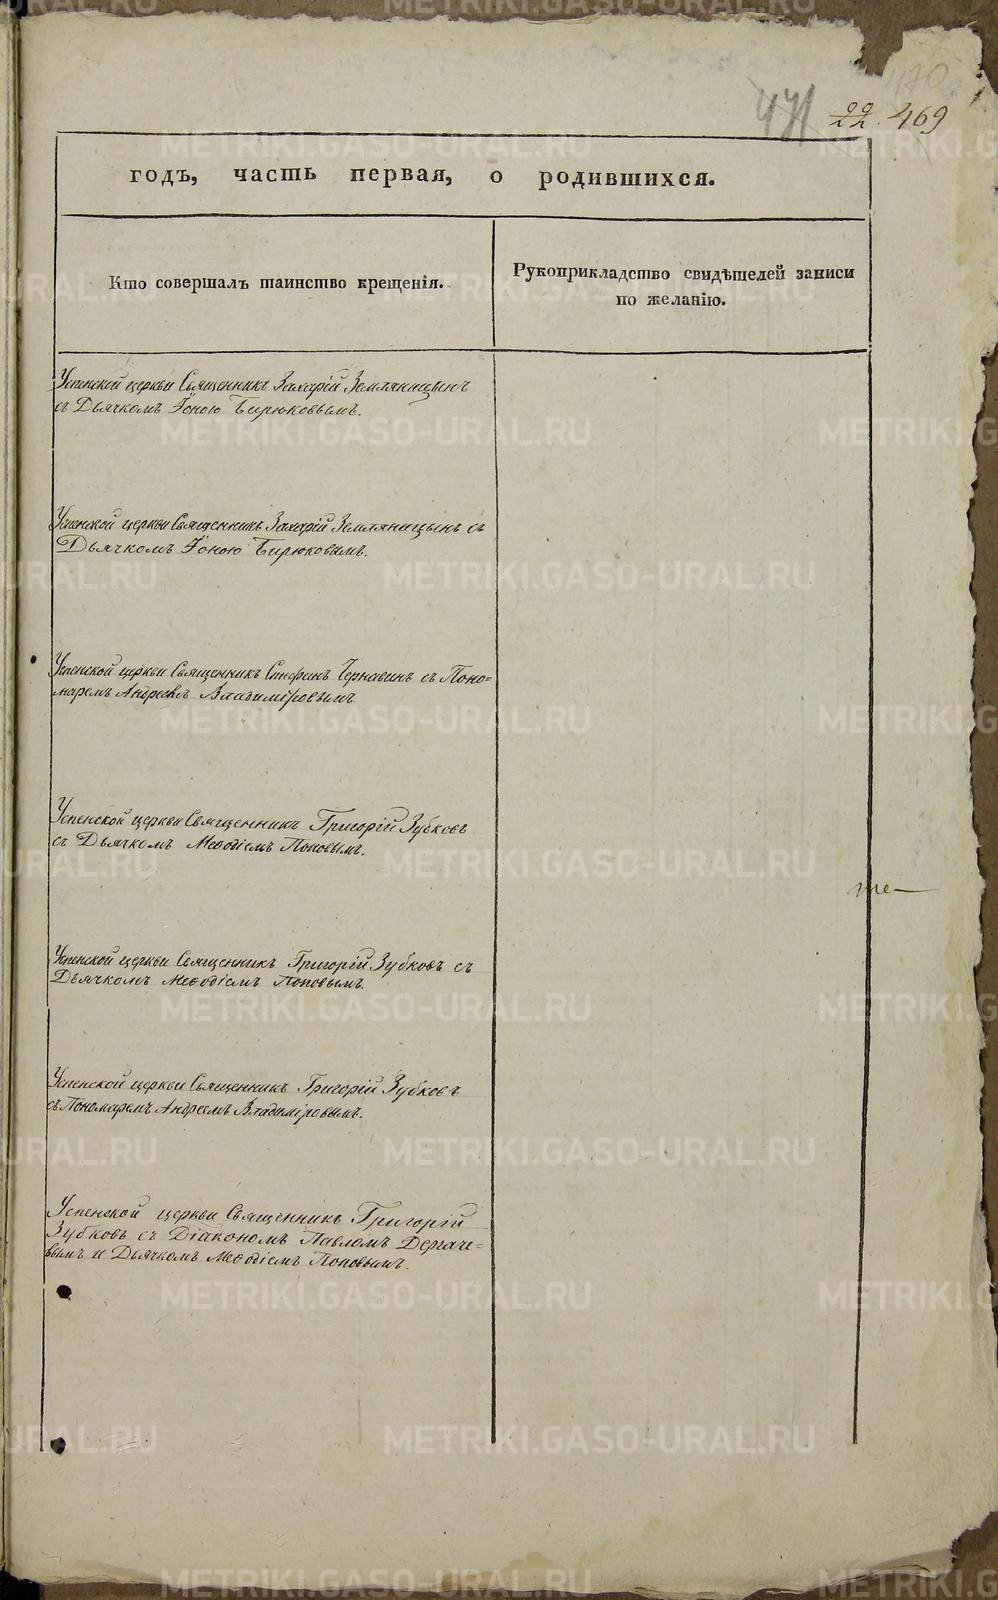 470
471 22. 469
годъ, часть первая, о родившихся.
Кто совершалъ таинство крещенія.
Рукоприкладство свидѣтелей записи
по желанію.
Успенской церкви Священникъ Захарій Земляницынъ
съ Дьячкомъ Іоною Бирюковымъ.
Успенской церкви Священникъ Захарій Земляницынъ съ
Дьячкомъ Іоною Бирюковымъ.
Успенской церкви Священникъ Стефанъ Чернавинъ съ Поно=
маремъ Андреемъ Владиміровымъ
Успенской церкви Священникъ Григорій Зубковъ
съ Дьячкомъ Меѳодіемъ Поповымъ.
Успенской церкви Священникъ Григорій Зубковъ съ
Дьячкомъ Меѳодіемъ Поповымъ.
Успенской церкви Священникъ Григорій Зубковъ
съ Пономаремъ Андреемъ Владиміровымъ.
Успенской церкви Священникъ Григорій
Зубковъ съ Діакономъ Павломъ Дергаче=
вымъ и Дьячкомъ Меѳодіемъ Поповымъ.
METRIKI.GASO-URAL.RU